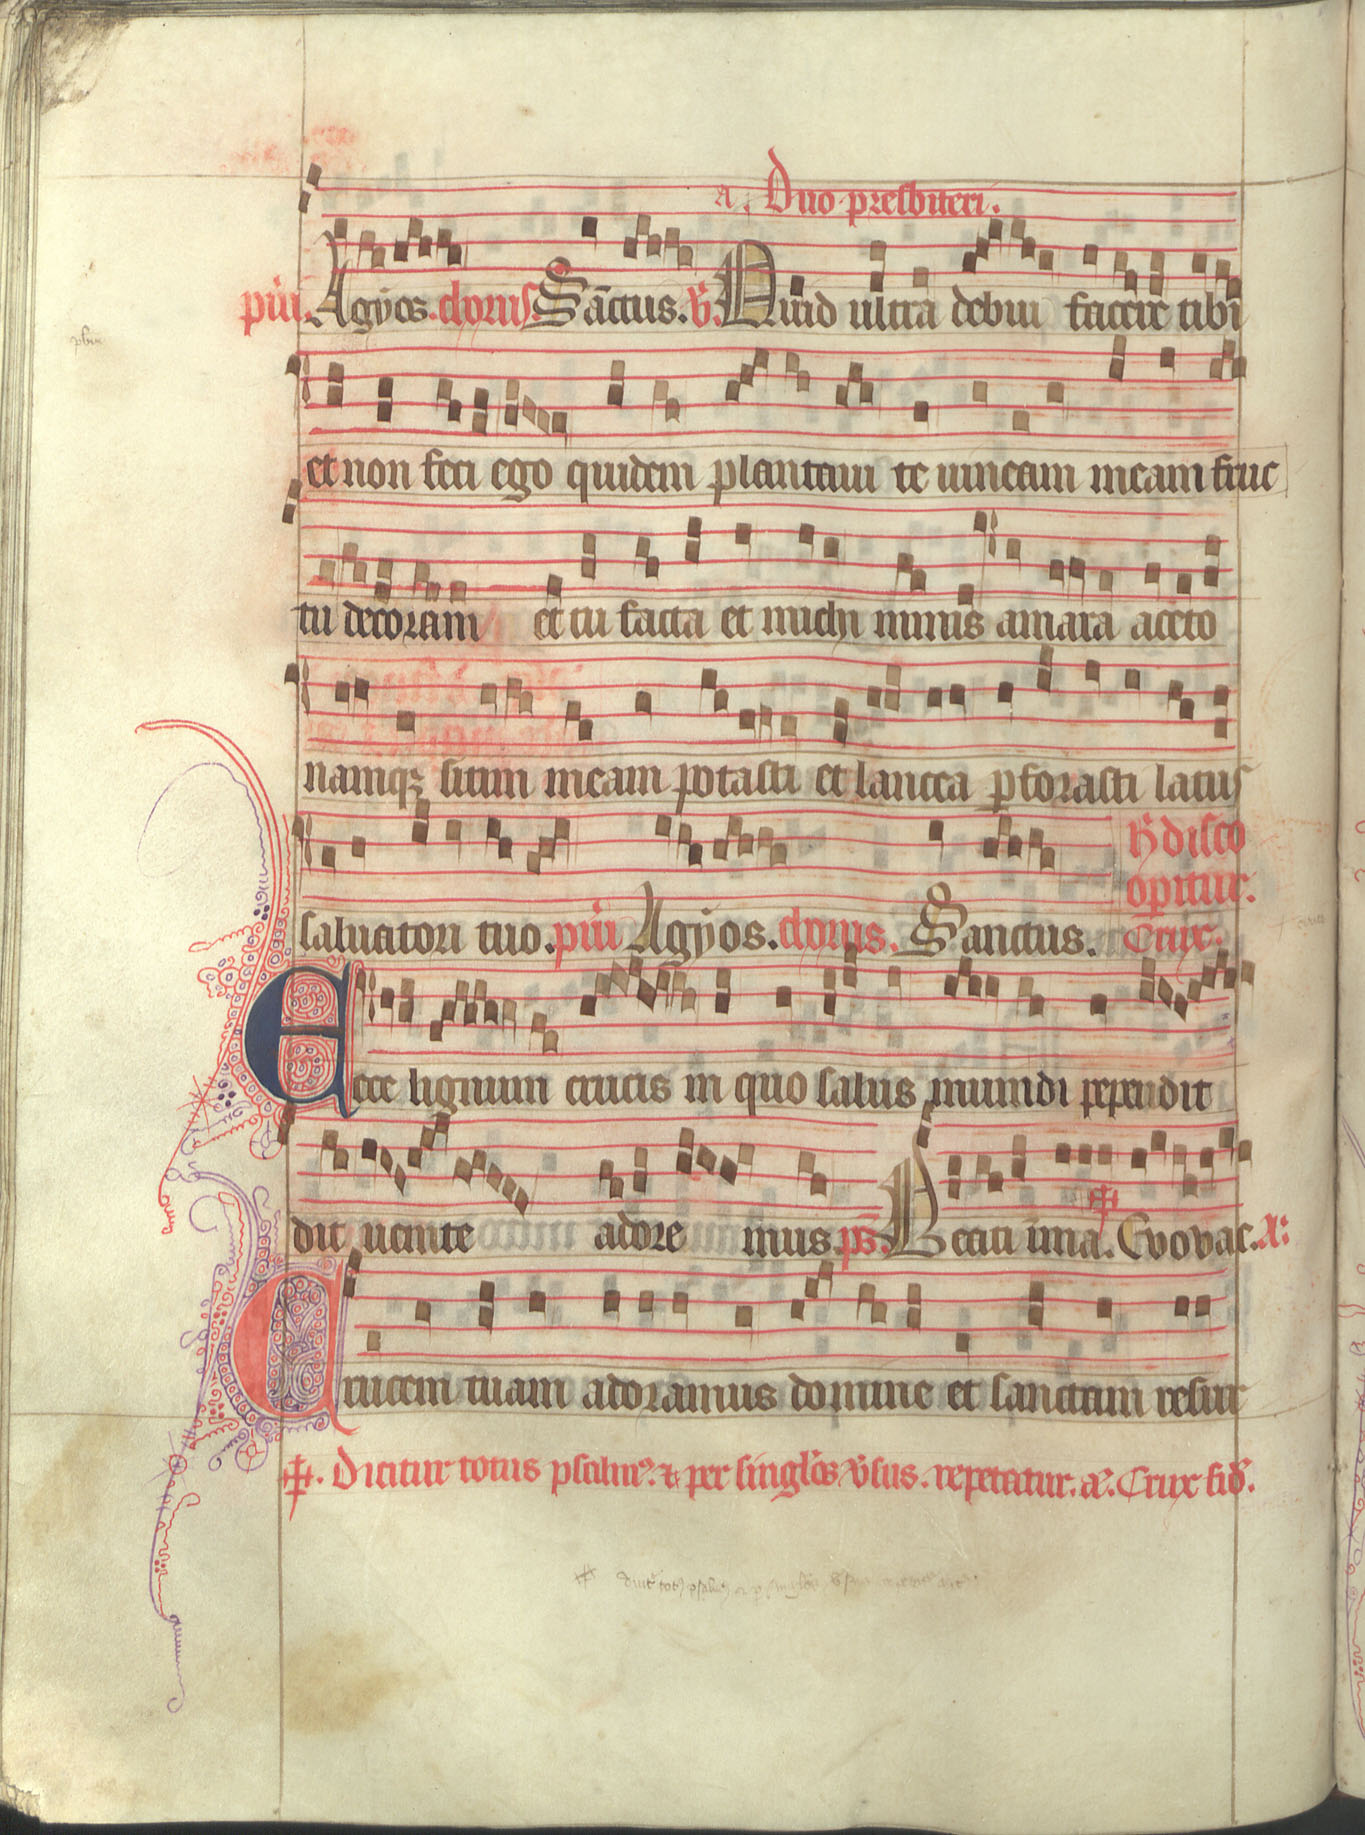 a. Duo presbiteri.
pu̅i. Agyos. chorus. Sa̅ctus. v̅. Quid ultra debui facere tibi
et non feci ego quidem plantaui te uineam meam fruc
tu decoram et tu facta et michi nimis amara aceto
namq; sitim meam potasti et lancea pforasti latus
saluatori tuo. pu̅i Agyos. chorus. Sanctus.
hic disco
opitur.
Crux.
Ecce lignum crucis in quo salus mundi pependit
dit uenite adore mus ps̅. Beati i̅ma. Evovae. A:
Crucem tuam adoramus domine et sanctam resur
‡. Dicitur totus psalm9. & per singlos v̅sus. repetatur. a̅. Crux fid̅.